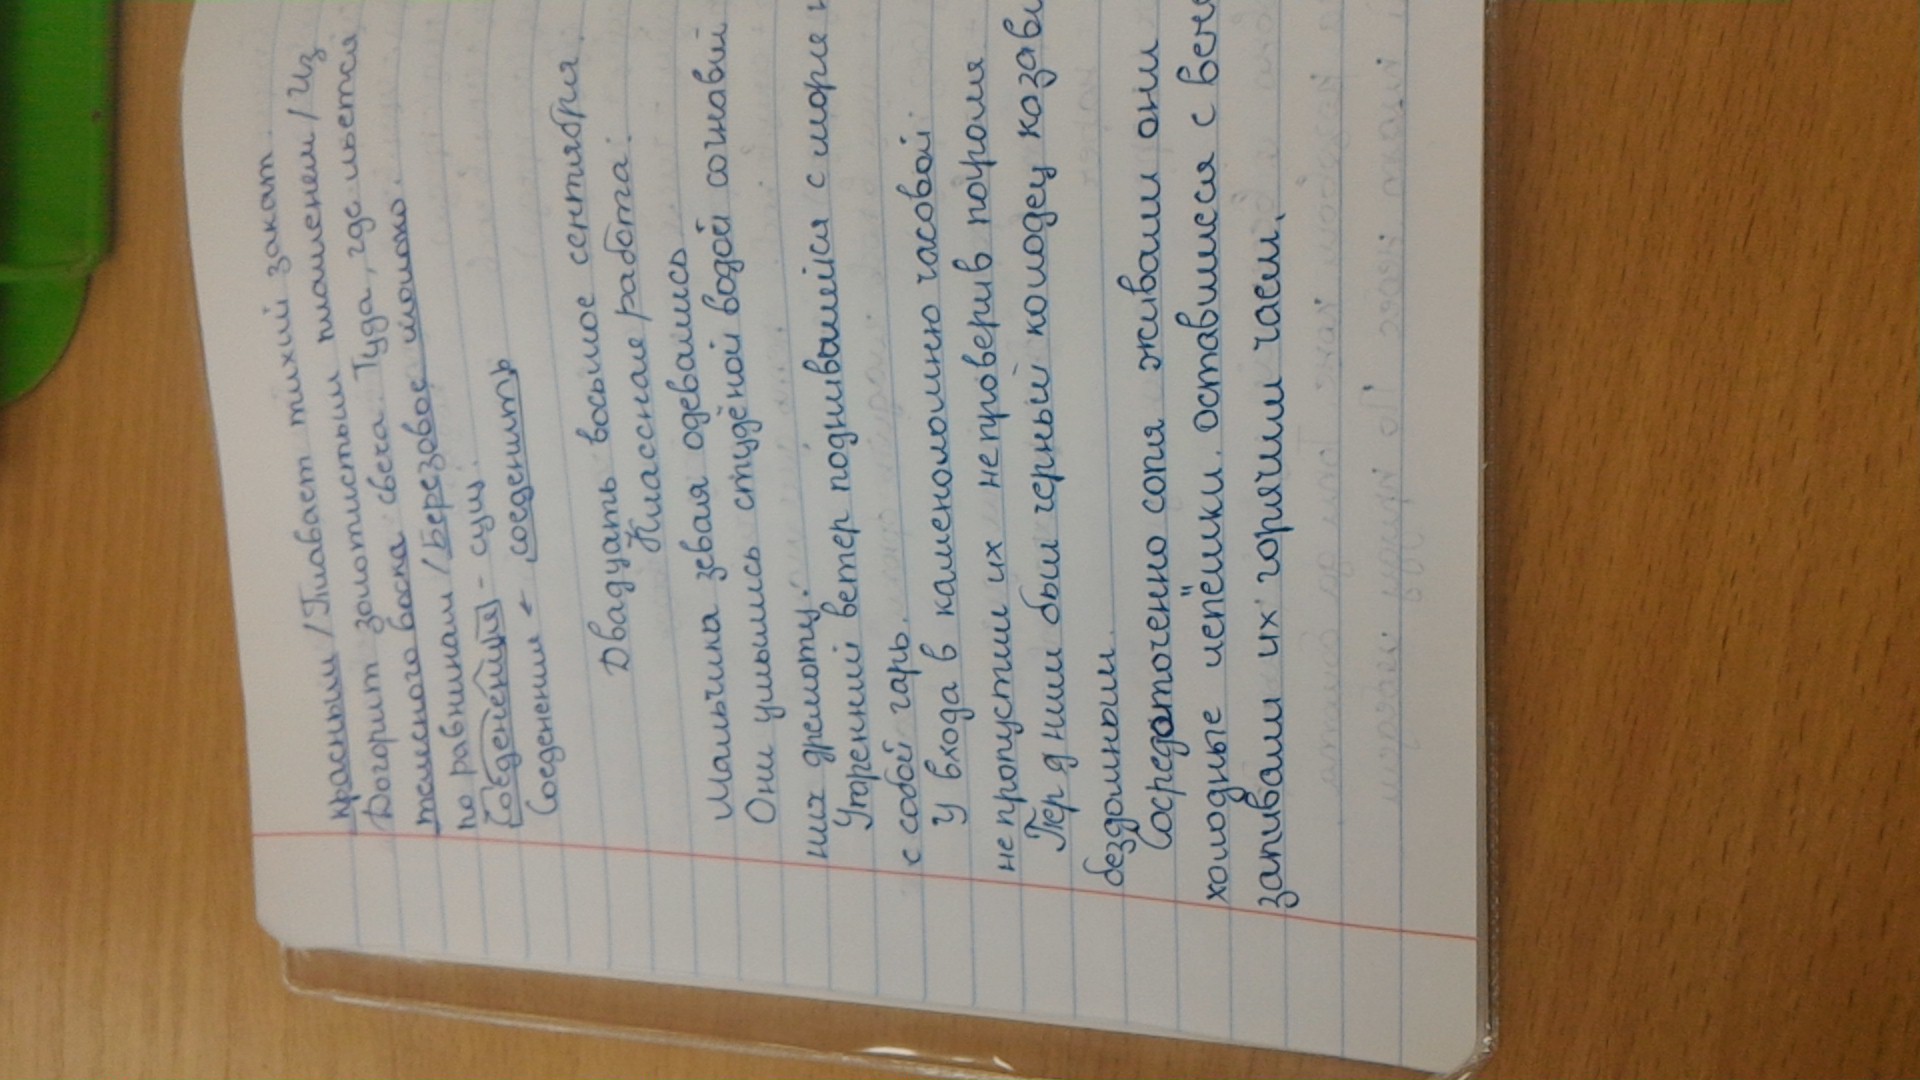 красным / Плавает тихий закат.
Догорит золотистым пламенем / Из
телесного воска свеча. Туда, где льется
по равнинам / Березовое молоко.
Соеденения - сущ.
Соеденение ← соеденить
Двадцать восьмое сентября.
Классная работа.
Мальчика зевая одевались
Они умылись студёной водой согновий
них дремоту.
Утренний ветер поднившейся с море н
с собой гарь.
У входа в каменоломню часовой
не пропустил их не проверив пороля
Пер д ним был черный колодец козави
бездомным.
Сосредоточенно сопя живали они
холодные лепёшки. оставшиеся с вече
запивали их горячим чаем.